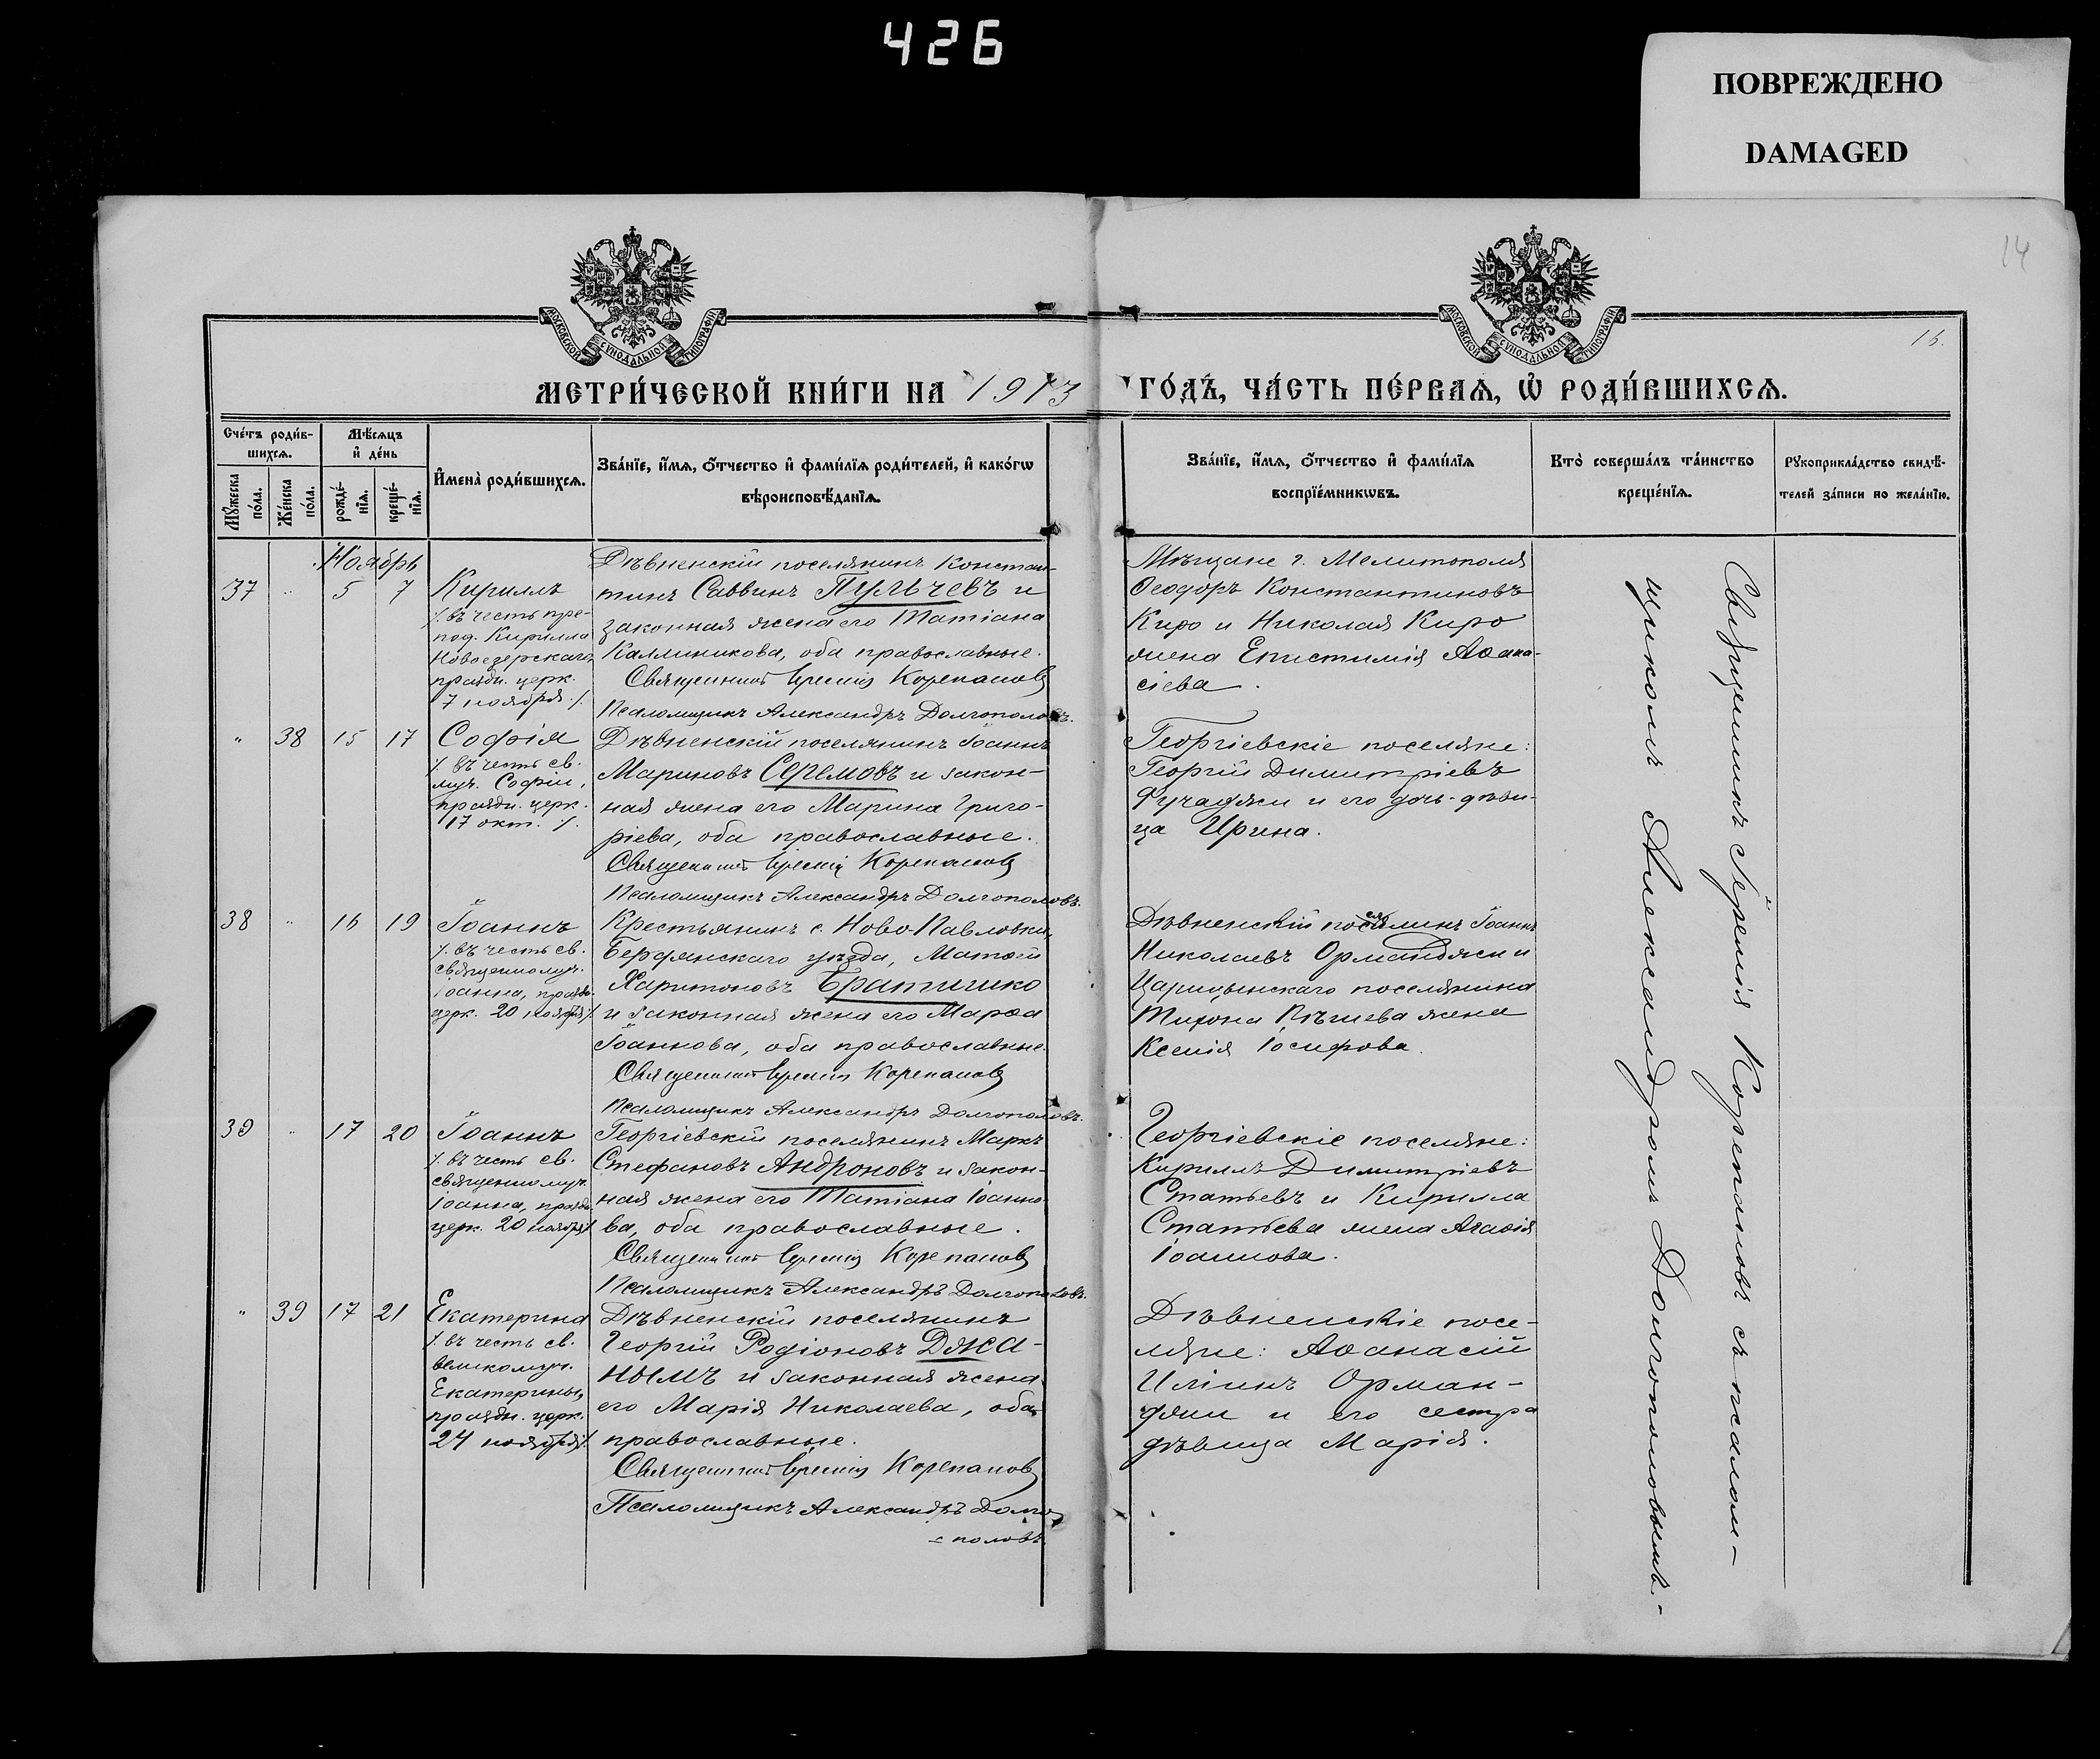 426
ПОВРЕЖДЕНО
DAMAGED
14
МОСКОВСКОЙ СѴНОДАЛЬНОЙ ТИПОГРАФІИ
МОСКОВСКОЙ СѴНОДАЛЬНОЙ ТИПОГРАФІИ
15.
МЕТРИ́ЧЕСКОЙ КНИ́ГИ НА 1913 ГО́ДЪ, ЧА́СТЬ ПЕ́РВАѦ, Ѽ РОДИ́ВШИХСѦ.
Сче́тъ роди́в-
шихсѧ.
Мꙋ́жеска по́ла.
Же́нска по́ла.
Мѣ́сѧцъ и҆ де́нь
рожде́-нїѧ.
креще́-нїѧ.
И҆мена̀ роди́вшихсѧ.
Зва́нїе, и҆́мѧ, ѻ҆́тчество и҆ фами́лїѧ роди́телей, и҆ како́гѡ
вѣроисповѣ́данїѧ.
Зва́нїе, и҆́мѧ, ѻ҆́тчество и҆ фами́лїѧ
воспрїе́мникѡвъ.
Кто̀ соверша́лъ та́инство
креще́нїѧ.
Рꙋкоприкла́дство свидѣ́-
телей за́писи по жела́нїю.
Ноябрь
37 " 5 7
Кириллъ
/. въ честь пре-
под. Кирилла
Новоезерскаго,
праздн. церк.
7 ноября ./.
Дѣвненскій поселянинъ Констан-
тинъ Саввинъ Пульчевъ и
законная жена его Татіана
Каллиникова, оба православные.
Священникъ Іеремія Корепановъ
Псаломщикъ Александръ Долгополовъ.
Мѣщане г. Мелитополя
Ѳеодоръ Константиновъ
Киро и Николая Киро
жена Епистимія Аѳана-
сіева.
" 38 15 17
Софія
/. въ честь св.
муч. Софіи,
праздн. церк.
17 окт. ./.
Дѣвненскій поселянинъ Іоаннъ
Мариновъ Серемовъ и закон-
ная жена его Марина Григо-
ріева, оба православные.
Священникъ Іеремія Корепановъ
Псаломщикъ Александръ Долгополовъ.
Георгіевскіе поселяне:
Георгій Димитріевъ
Фучаджи и его дочь-дѣви-
ца Ирина.
38 " 16 19
Іоаннъ
/. въ честь св.
священномуч.
Іоанна, праздн.
церк. 20 ноября ./.
Крестьянинъ с. Ново-Павловки,
Бердянскаго уѣзда, Матѳей
Харитоновъ Братишко
и законная жена его Марѳа
Іоаннова, оба православные.
Священникъ Іеремія Корепановъ
Псаломщикъ Александръ Долгополовъ.
Дѣвненскій поселянинъ Іоаннъ
Николаевъ Орманджи и
Царицынскаго поселянина
жена
Ксенія Іосифова.
39 " 17 20
Іоаннъ
/. въ честь св.
священномуч.
Іоанна, праздн.
церк. 20 ноября ./.
Георгіевскій поселянинъ Маркъ
Стефановъ Андроновъ и закон-
ная жена его Татіана Іоанно-
ва, оба православные.
Священникъ Іеремія Корепановъ
Псаломщикъ Александръ Долгополовъ.
Георгіевскіе поселяне:
Кириллъ Димитріевъ
Статьевъ и Кирилла
Статьева жена Агаѳія
Іоаннова.
" 39 17 21
Екатерина
/. въ честь св.
великомуч.
Екатерины,
праздн. церк.
24 ноября ./.
Дѣвненскій поселянинъ
Георгій Родіоновъ Джа-
нымъ и законная жена
его Марія Николаева, оба
православные.
Священникъ Іеремія Корепановъ
Псаломщикъ Александръ Долго-
половъ
Дѣвненскіе посе-
ляне: Аѳанасій
Иліинъ Орман-
джи и его сестра
дѣвица Марія.
Священникъ Іеремія Корепановъ съ псалом-
щикомъ Александромъ Долгополовымъ.-